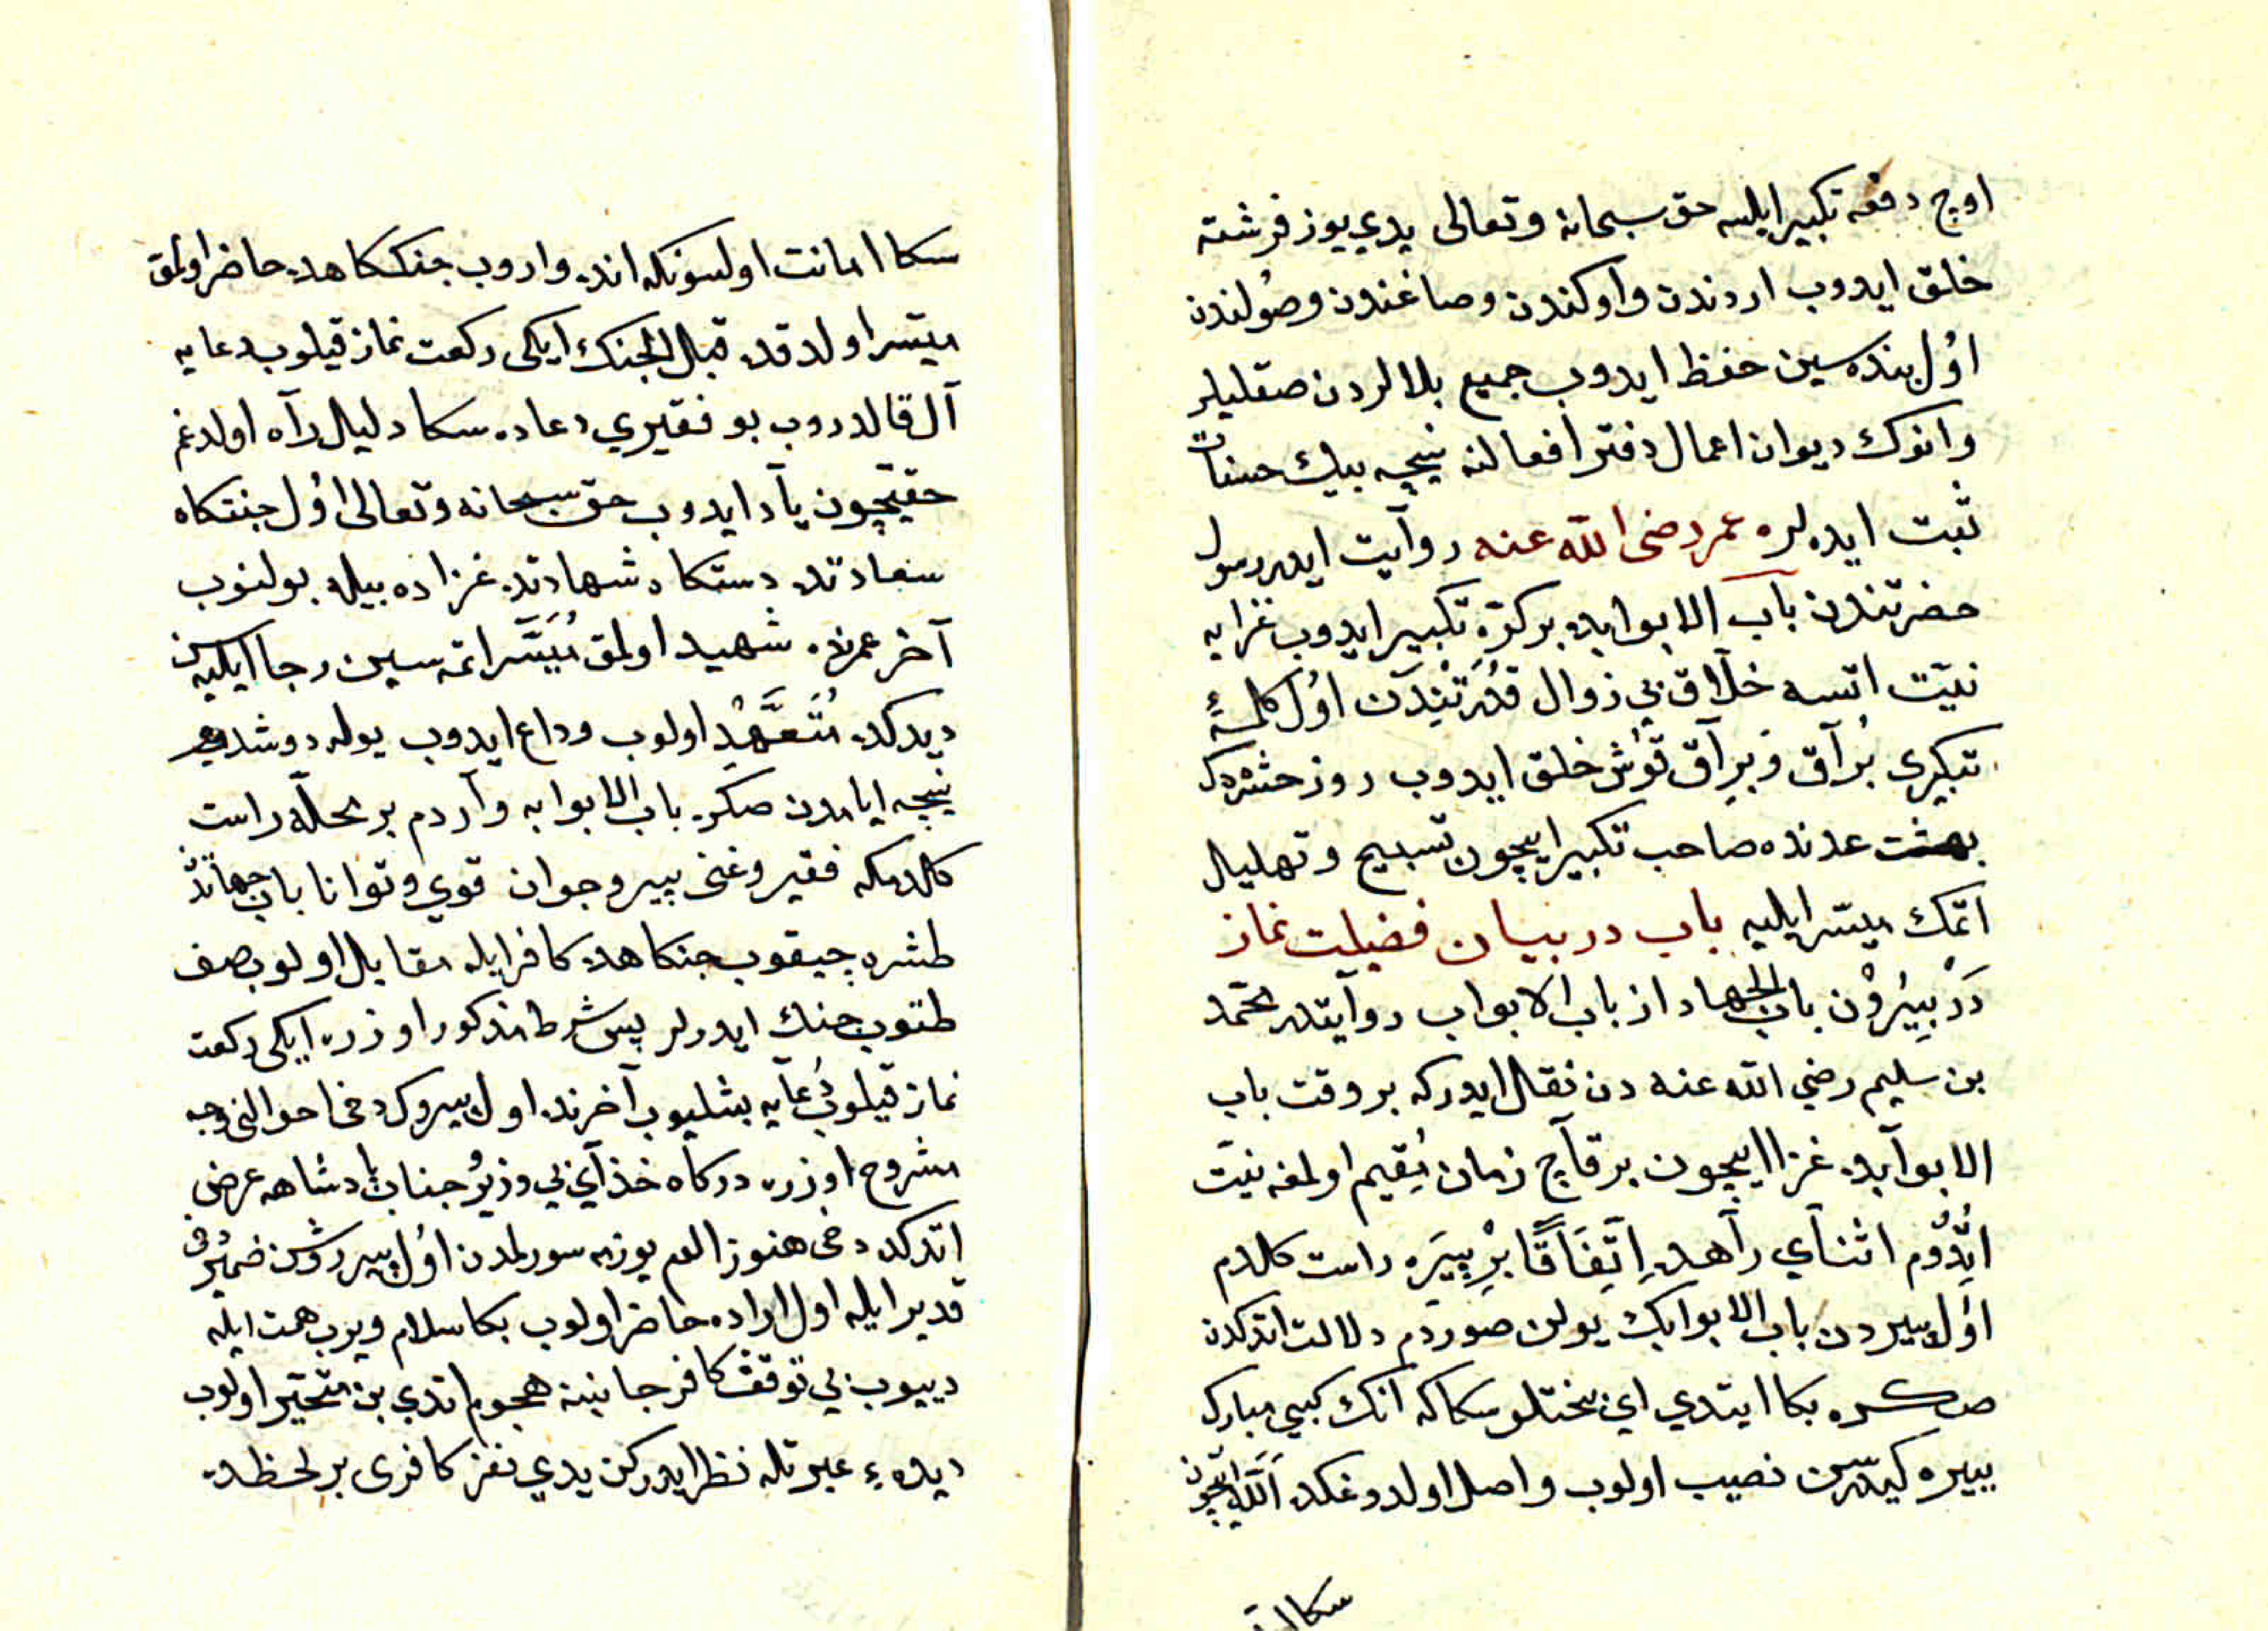 اوچ دفعه تكبير ايلسه حق سبحانه وتعالى يدي يوز فرشته
خلق ايدوب اردندن واوكندن وصاغندن وصُولندن
اوُل بنده سين حفظ ايدوب جميع بلالردن صقليلر
وانوك ديوان اعمال دفتر افعالنه نيچه بيك حسنات
ثبت ايده لره عمر رضى الله عنه روآيت ايدر رسول
حضرتندن باب الابوابده بر كرّه تكبير ايدوب غزايه
نيّت اتسه خلّاق بي زوال قدُرَتْنِدَن اوُل كلمهٔ
تكبيرى بُرآق وَبرآق قوُش خلق ايدوب روز حشرده
بهشت عدنده صاحب تكبير ايچون تسبيح وتهليل
اتمك ميسّر ايليه باب در بيان فضيلت نماز
دَرْ بِيرُوْن باب الجهاد از باب الابواب روآيتدر محمّد
بن سليم رضي الله عنه دن نقل ايدركه بر وقت باب
الابوآبده غزا ايچون برقآچ زمان مُقيم اولمغه نيّت
اِتِّدُوْم اثنآي رآهده اِتِّفَاقًا بِرْ بِيَرِه راست كلدم
اوُل بيردن باب الابوابك يولن صوردم دلالت اتدكدن
صكره بكا ايتدي اي بختلو سكاكه انك كبي مبارك
ييره كيدرسن نصيب اولوب واصل اولدوغكده اَللّه ايچون
سكا امانت
سكا امانت اولسونكه انده واروب جنككاهده حاضر اولمق
ميسّر اولدقده قبل الجنك ايكى ركعت نماز قيلوب دعايه
آل قالدروب بو فقيري دعاده سكا دليل رآه اولدغم
حقيچون يآد ايدوب حق سبحانه وتعالى اوُل جنتكاه
سعادتده دستكاه شهادتده غزاده بيله بولنوب
آخر عمرنده شهيد اولمق مُيَسَّر اتمه سين رجا ايليه سن
ديدكده مُتَعَهِّدْ اولوب وداع ايدوب يوله دوشدم
نيچه ايامدن صكره باب الابوابه وآردم بر محلّه راست
كلدمكه فقير وغنى پير وجوان قوي وتوانا باب جهاندن
طشره چيقوب جنكاهده كافرايله مقابل اولوب صف
طتوب جنك ايدرلر پس شرط مذكور اوزره ايكى ركعت
نماز قيلوب دُعآيه بشليوب آخرنده اول پيروك دخى احوالنى وجه
مشروح اوزره دركاه خدآي بي وزيرُ جناب پادشاهه عرض
اتدكده دخى هنوز الم يوزمه سورلمدن اوُل پير روشن ضمير
قدير ايله اول اراده حاضر اولوب بكا سلام ويرب همت ايله
دييوب بي توقف كافر جانبنه هجوم اتدي بن متحيّر اولوب
ديدهء عبرتله نظر ايدركن يدي نفر كافرى بر لحظه ده